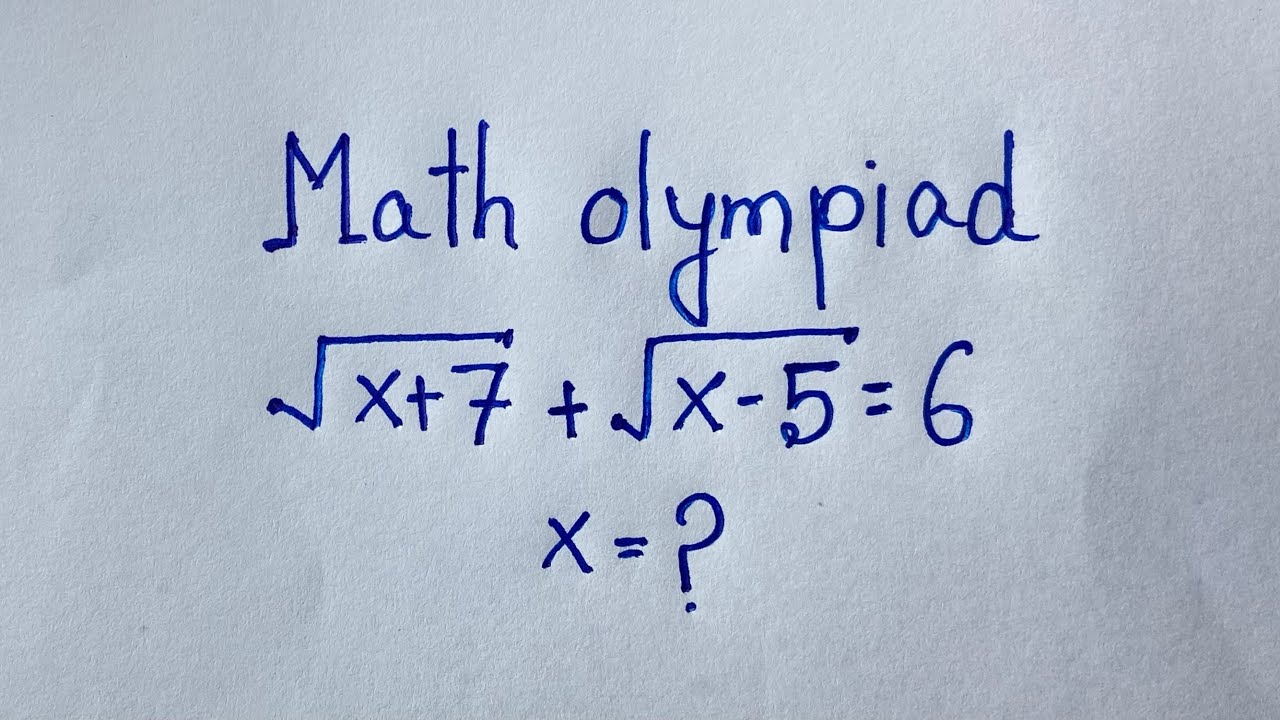 Math olympiad
√x+7 + √x-5 = 6
x = ?